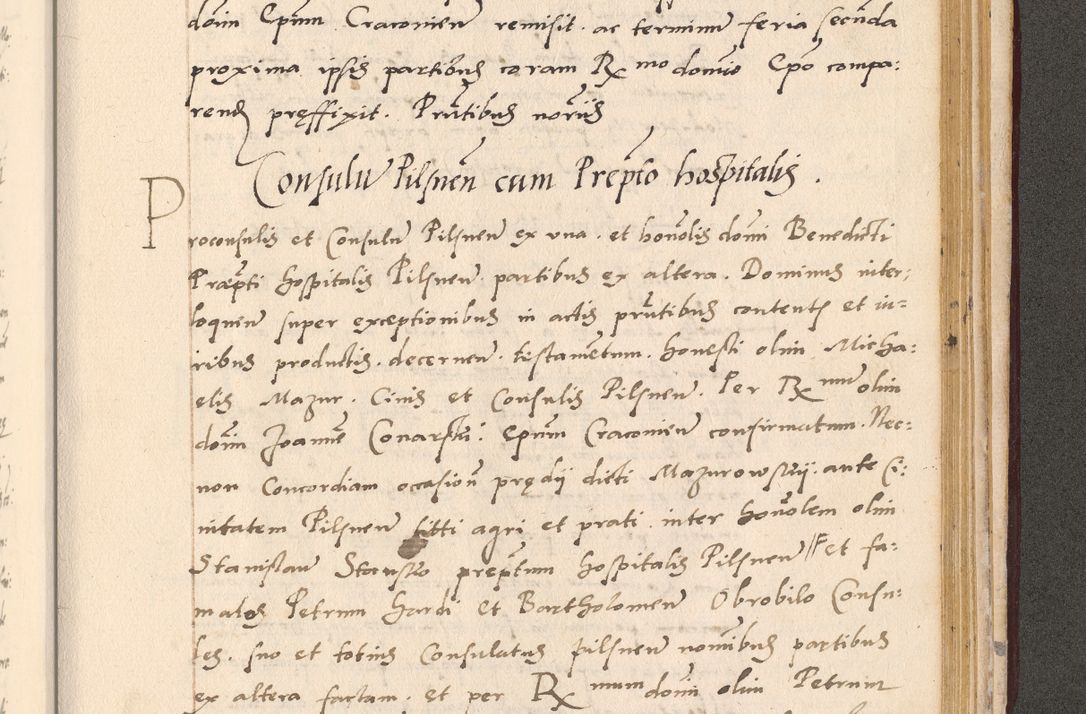 domini Epum Cracovien remisit. ac terminum feria secunda
proxima ipsis partibus coram Rmo domino Epo compa:
rend pręffixit. Pruntibus notariis
Consulum Pilsnen cum Prepto hospitalis.
Proconsulis et Consulum Pilsnen ex una. et honolis domini Benedicti
Præpti hospitalis Pilsnen partibus ex altera. Dominus inter:
loquen super exceptionibus in actis pruntibus contentis et iu=
iribus productis. decernen. testamentum. honesti olim Micha:
elis Mazur. Civis et Consulis Pilsnen. Per Rmum olim
domini Joannem Conarski. Epum Cracovien confirmatum. Nec:
non Concordiam occasion prędii dicti Mazurowskij. ante Ci:
vitatem Pilsnen sitti agri et prati. inter honolem olim
Stanislaum preptum hospitalis Pilsnen et fa:
matos Petrum Hardi et Bartholomeum Obrobilo Consu:
les. suo et totius Consulatus Pilsnen nominibus partibus
ex altera factam. et per Rmum domini olim Petrum